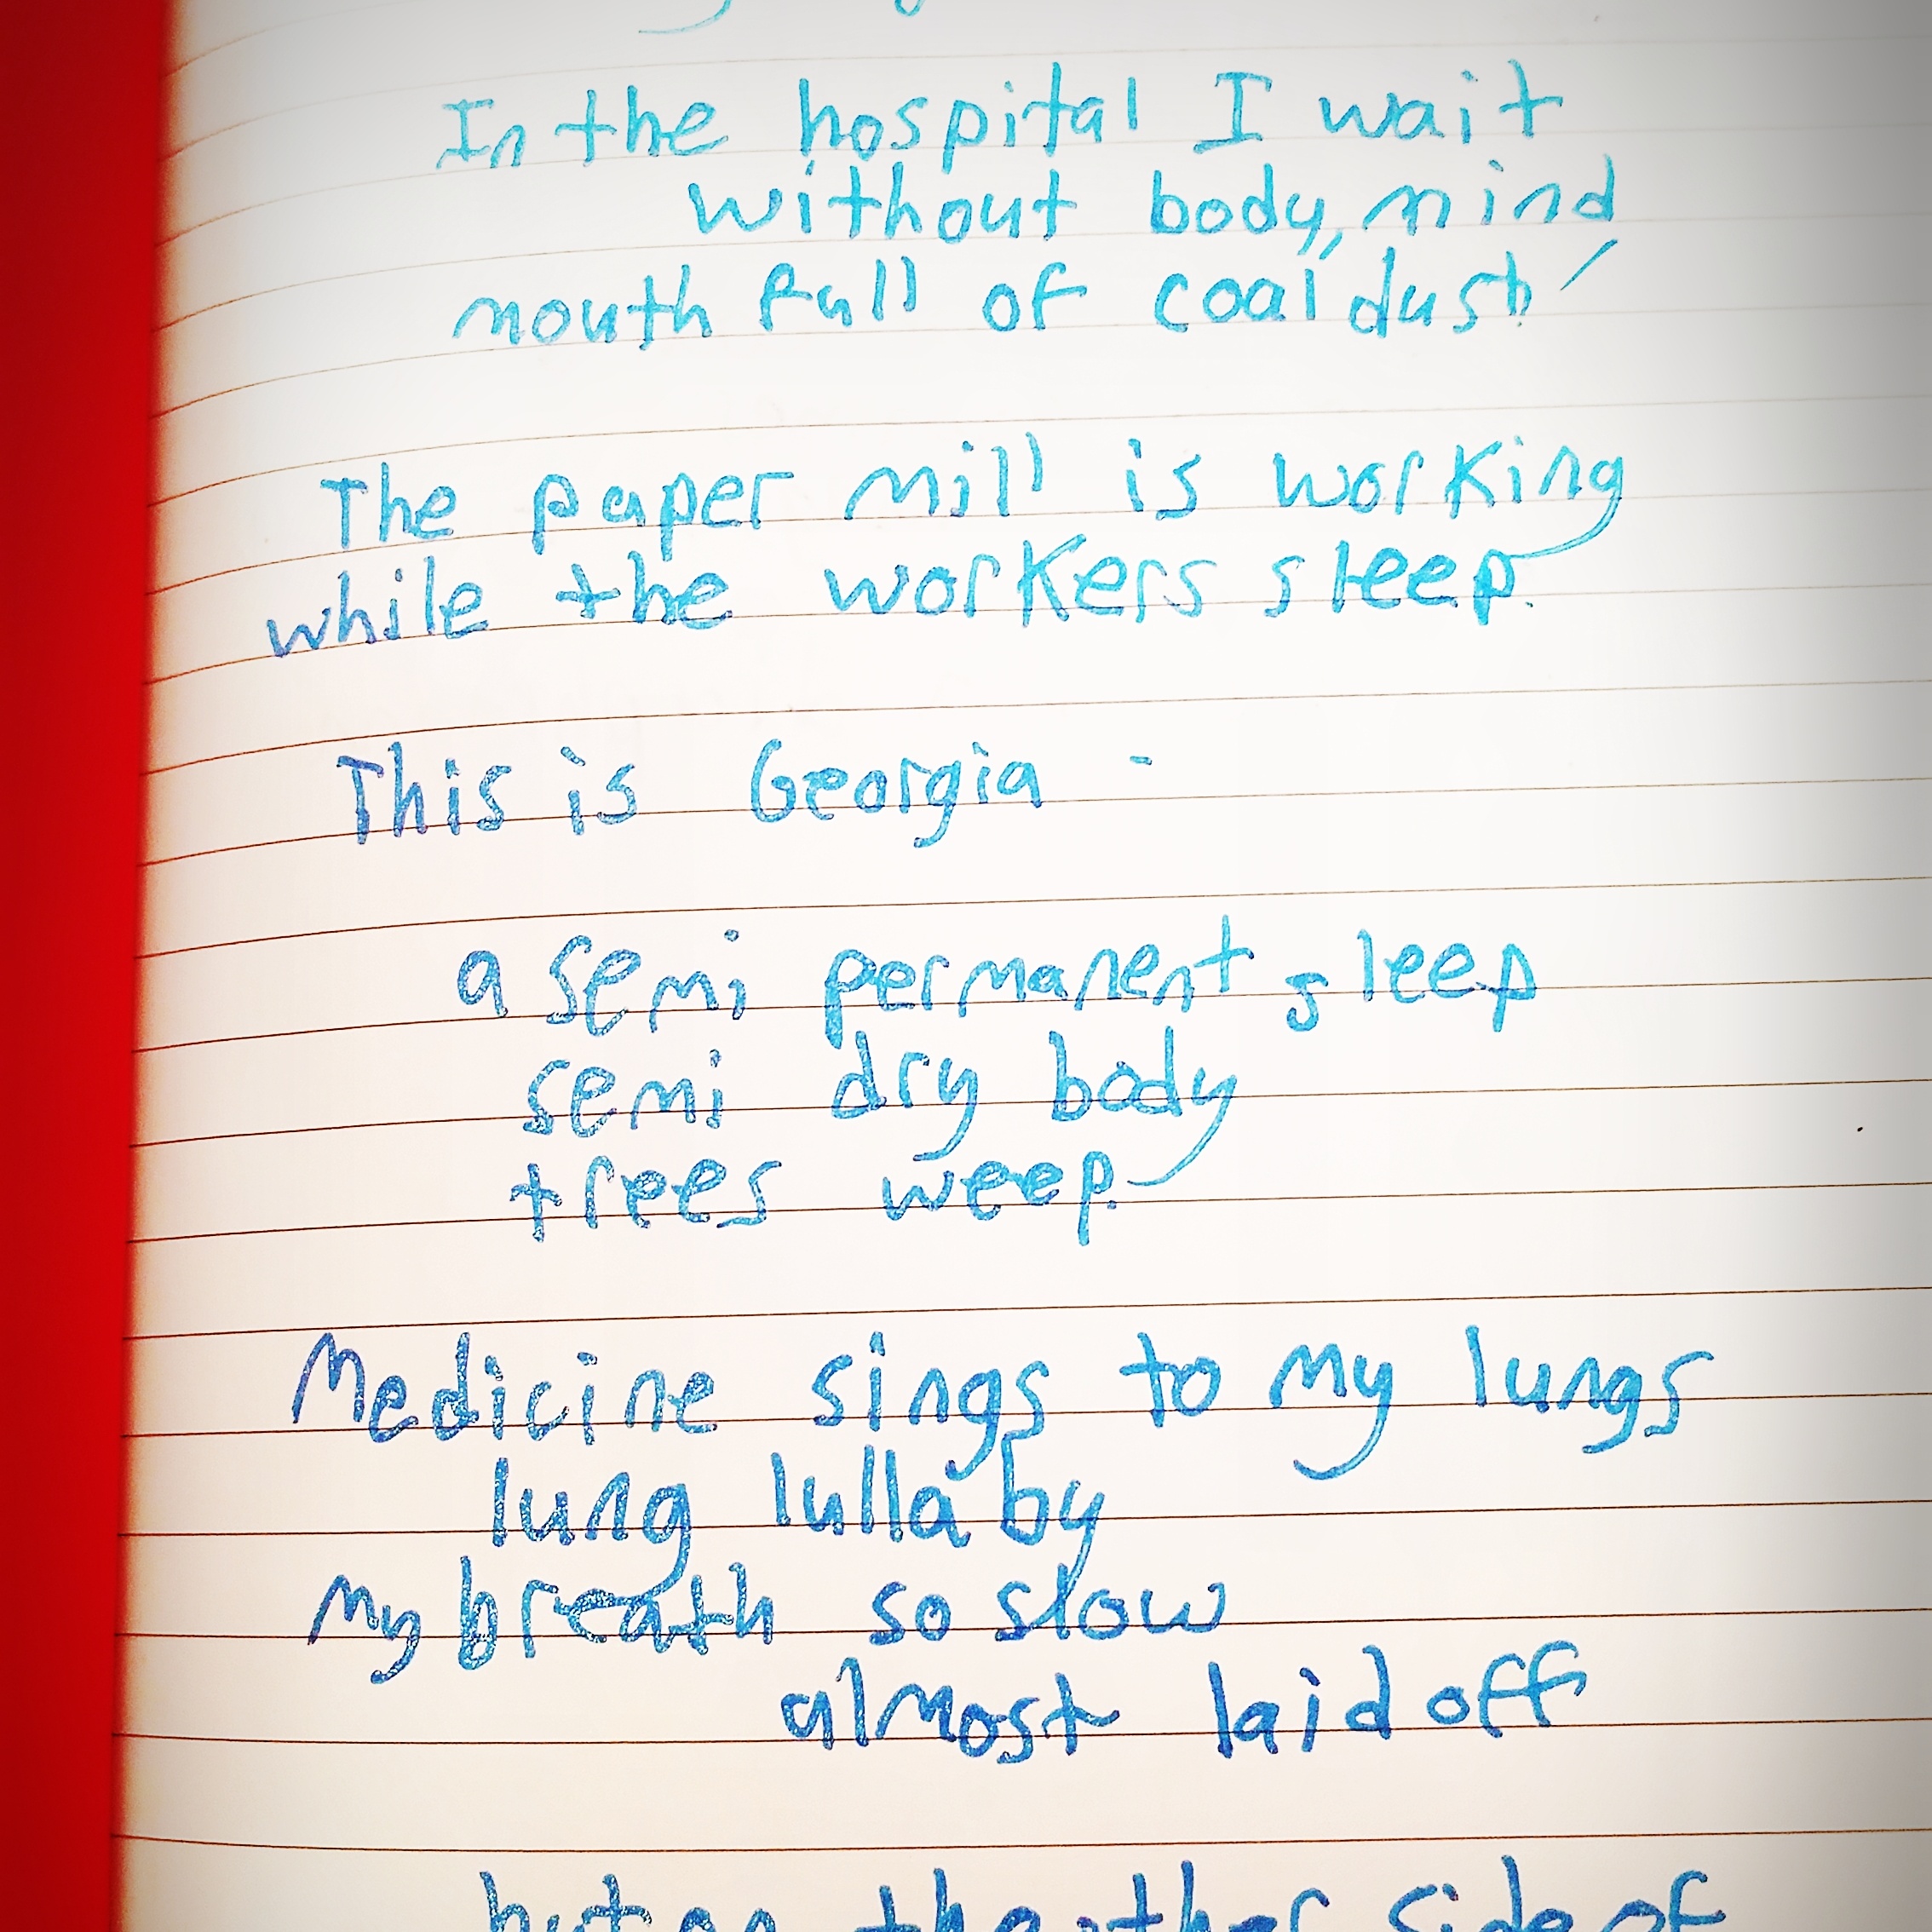 In the hospital I wait
without body, mind
mouth full of coal dust
The paper mill is working
while the workers sleep.
This is Georgia -
a semi permanent sleep
semi dry body
trees weep.
Medicine sings to my lungs
lung lullaby
my breath so slow
almost laid off
but on the other side of